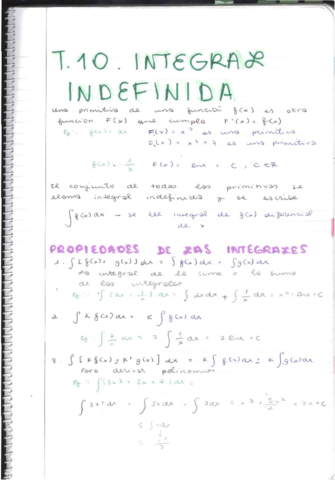 T.10. INTEGRAL
INDEFINIDA
Una primitiva de una función f(x) es otra
función F(x) que cumpla F'(x) = f(x)
Eg: f(x) = 2x F₁(x) = x² es una primitiva
F₂(x) = x² + 7 es una primitiva
f(x) = 1/x F(x) = Lnx + C, C∈R
El conjunto de todas las primitivas se
llama integral indefinida y se escribe
∫f(x)dx → se lee integral de f(x) diferencial
de x
PROPIEDADES DE LAS INTEGRALES
1. ∫[f(x) + g(x)] dx = ∫f(x)dx + ∫g(x)dx
la integral de la suma = la suma
de las integrales
Eg: ∫(2x + 1/x) dx = ∫2xdx + ∫1/x dx = x² + Lnx + C
2. ∫K f(x) dx = K ∫f(x) dx
3. ∫[K f(x) ± K' g(x)] dx = K ∫f(x)dx ± K' ∫g(x)dx
Para derivar polinomios